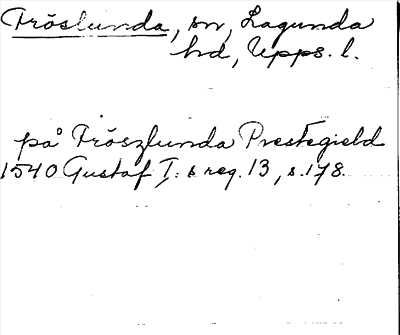 Fröslunda, sn, Lagunda
hd, Upps. l.
på Fröszlunda Prestegield
1540 Gustaf I: s reg. 13, s. 178.